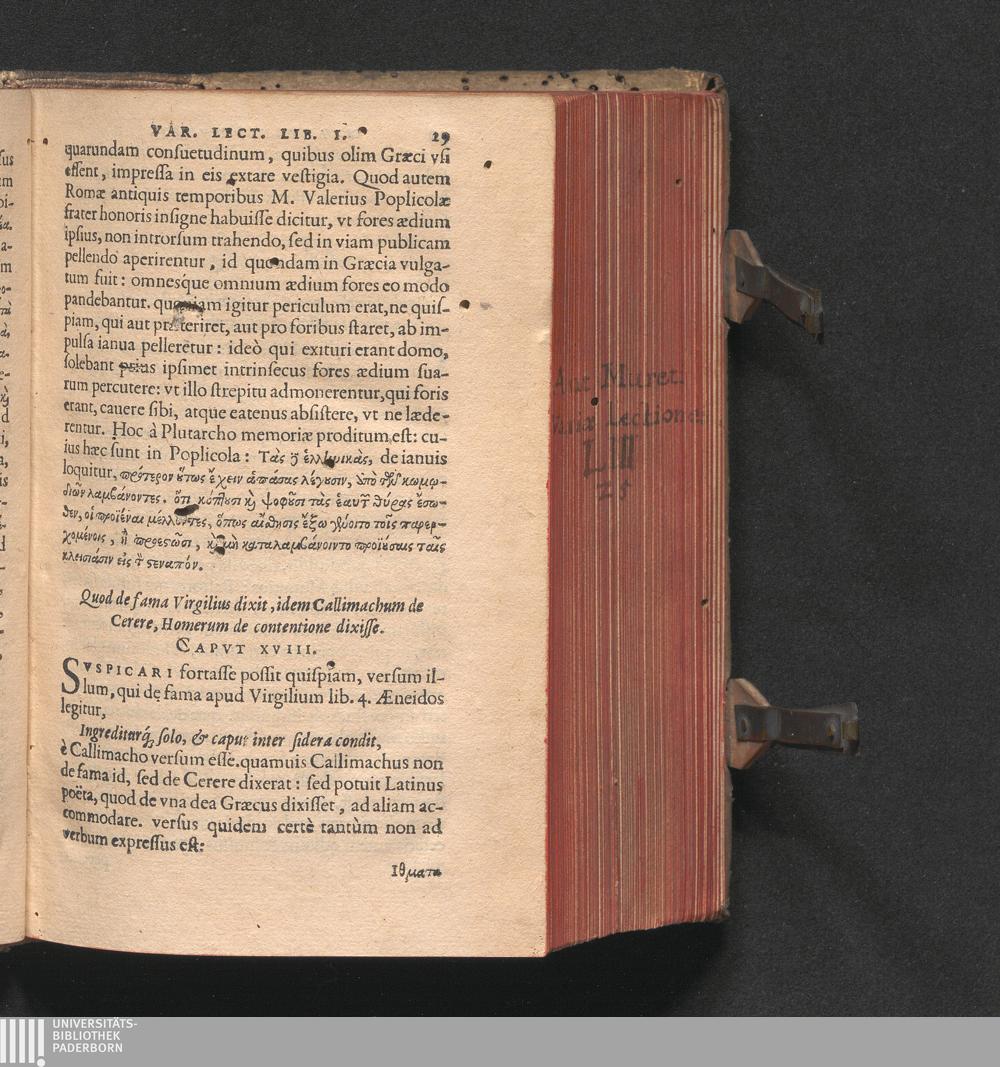 VAR. LECT. LIB. I. 29
quarundam consuetudinum, quibus olim Græci vsi
essent, impressa in eis extare vestigia. Quod autem
Romæ antiquis temporibus M. Valerius Poplicolæ
frater honoris insigne habuisse dicitur, vt fores ædium
ipsius, non introrsum trahendo, sed in viam publicam
pellendo aperirentur, id quondam in Græcia vulga-
tum fuit: omnesque omnium ædium fores eo modo
pandebantur. quoniam igitur periculum erat, ne quis-
piam, qui aut præteriret, aut pro foribus staret, ab im-
pulsa ianua pelleretur: ideò qui exituri erant domo,
solebant prius ipsimet intrinsecus fores ædium sua-
rum percutere: vt illo strepitu admonerentur, qui foris
erant, cauere sibi, atque eatenus absistere, vt ne læde-
rentur. Hoc à Plutarcho memoriæ proditum est: cu-
ius hæc sunt in Poplicola: Τὰς ἑλληνικὰς, de ianuis
loquitur, πρότερον οὕτως ἔχειν ἁπάσας λέγουσιν, ἀπὸ τῶν κωμῳ-
διῶν λαμβάνοντες. ὅτι κόπτουσι καὶ ψοφοῦσι τὰς ἑαυτῶν θύρας ἔσω-
θεν, οἱ προϊέναι μέλλοντες, ὅπως αἴσθησις ἔξω γένοιτο τοῖς παρερ-
χομένοις, ἢ προεστῶσι, καὶ μὴ καταλαμβάνοιντο προϊούσαις ταῖς
κλεισιάσιν εἰς τὸν στεναπόν.
Quod de fama Virgilius dixit, idem Callimachum de
Cerere, Homerum de contentione dixisse.
CAPVT XVIII.
SVSPICARI fortasse possit quispiam, versum il-
lum, qui de fama apud Virgilium lib. 4. Æneidos
legitur,
Ingrediturq́; solo, & caput inter sidera condit,
è Callimacho versum esse. quamuis Callimachus non
de fama id, sed de Cerere dixerat: sed potuit Latinus
poëta, quod de vna dea Græcus dixisset, ad aliam ac-
commodare. versus quidem certè tantùm non ad
verbum expressus est:
Ιθματα
Ant Muret:
Variæ Lectiones
LIII
25
UNIVERSITÄTS-
BIBLIOTHEK
PADERBORN